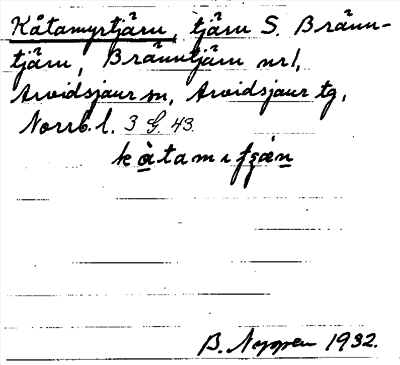 Kåtamyrtjärn, tjärn S. Bränn-
tjärn, Bränntjärn nr 1,
Arvidsjaur sn, Arvidsjaur tg,
Norrb. l. 3 G. 43.
B. Nyppen 1932.